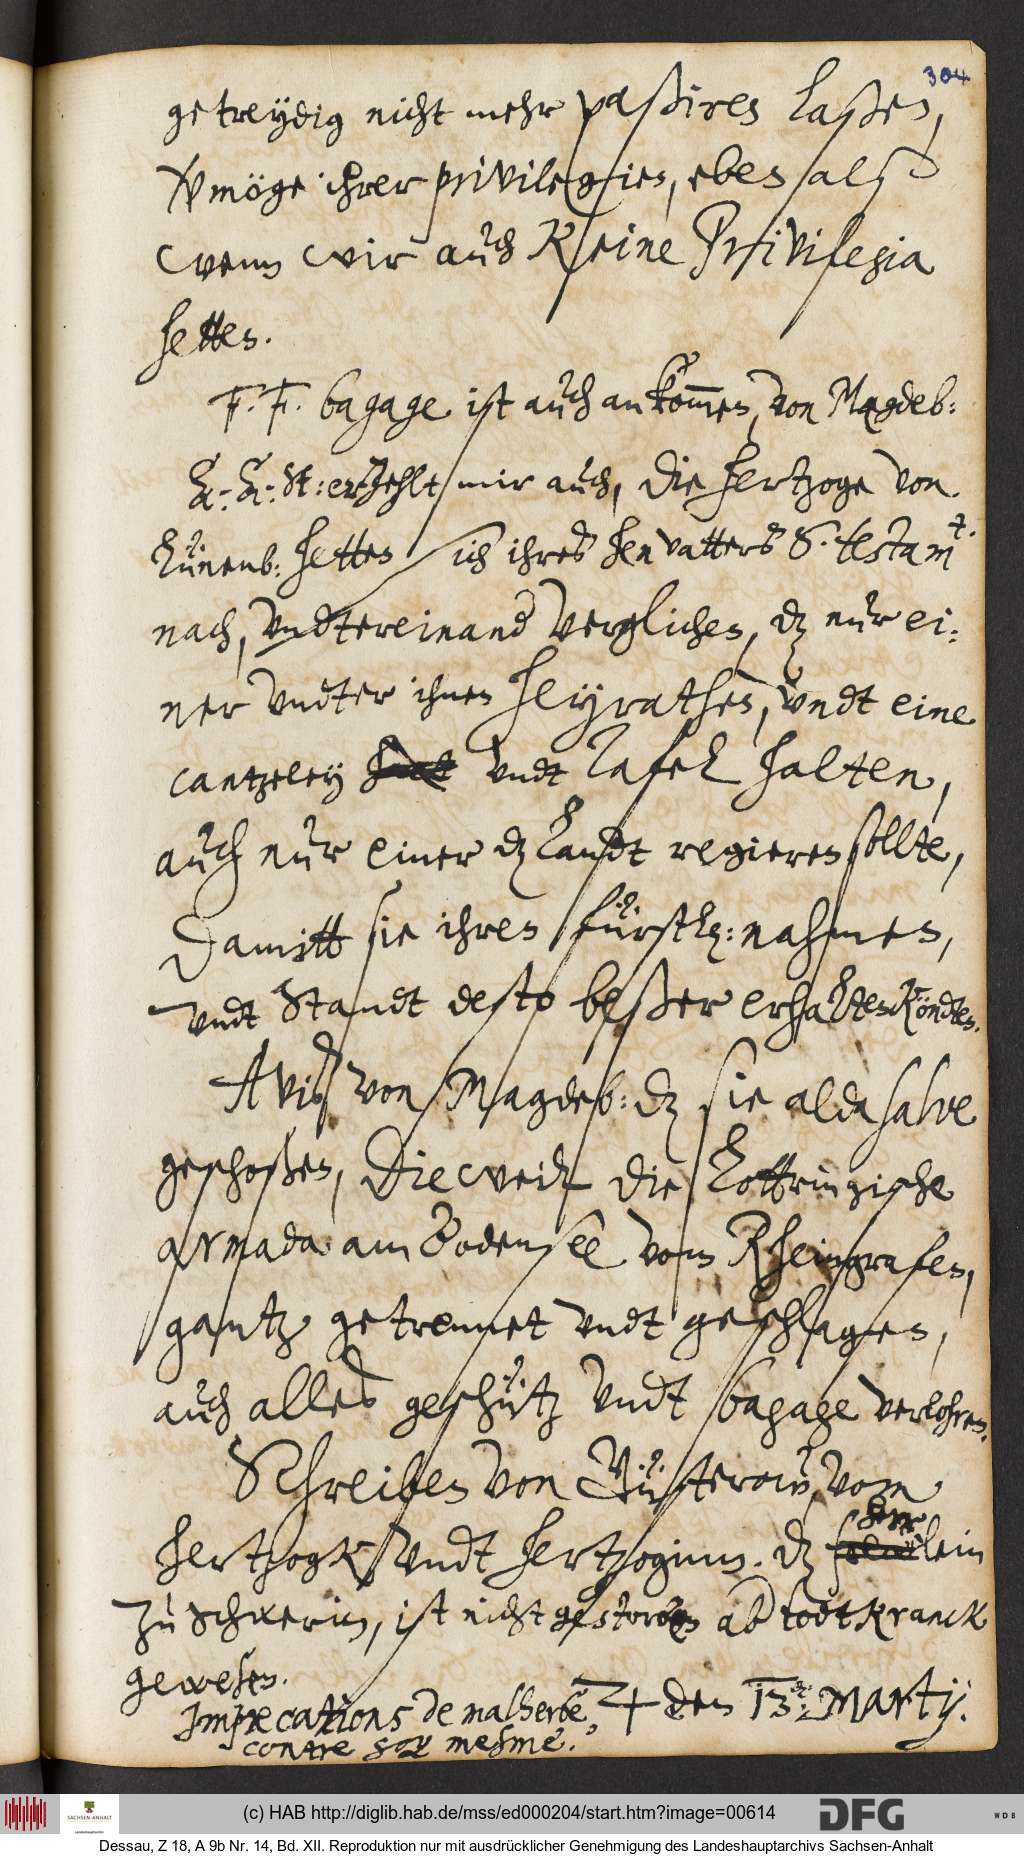 304
getreydig nicht mehr paßiren laßen,
Vermöge ihrer privilegien, eben alß
wenn wir auch Keine Privilegia
hetten.
bagage ist auch ankommen, von Magdeb:
erzehlt mir auch, die hertzoge von
Lünenb: hetten sich ihres hern vatters S. testamt.
nach, vndtereinand verglichen, dz nur ei=
ner vndter ihnen heyrathen, vndt eine
cantzeley vndt Tafel halten,
auch nur einer dz Landt regieren sollte,
Damitt sie ihren fürstl: nahmen,
vndt Standt desto beßer erhalten köndten.
Aviß von Magdeb: dz sie alda salve
geschoßen, Dieweil die Lottringische
armada am Bodensee vom Rheingrafen,
gantz getrennet vndt geschlagen,
auch alles geschütz vndt bagage verlohren.
Schreiben von Güsterow, vom
hertzogk vndt hertzoginn. dz herrlein
zu Schwerin, ist nicht gestorben ab todtkranck
gewesen.
Imprecations de malherbe, ♃ den 13. Martij.
contre soy mesme.
(c) HAB http://diglib.hab.de/mss/ed000204/start.htm?image=00614
SACHSEN-ANHALT
DFG
WDB
Dessau, Z 18, A 9b Nr. 14, Bd. XII. Reproduktion nur mit ausdrücklicher Genehmigung des Landeshauptarchivs Sachsen-Anhalt